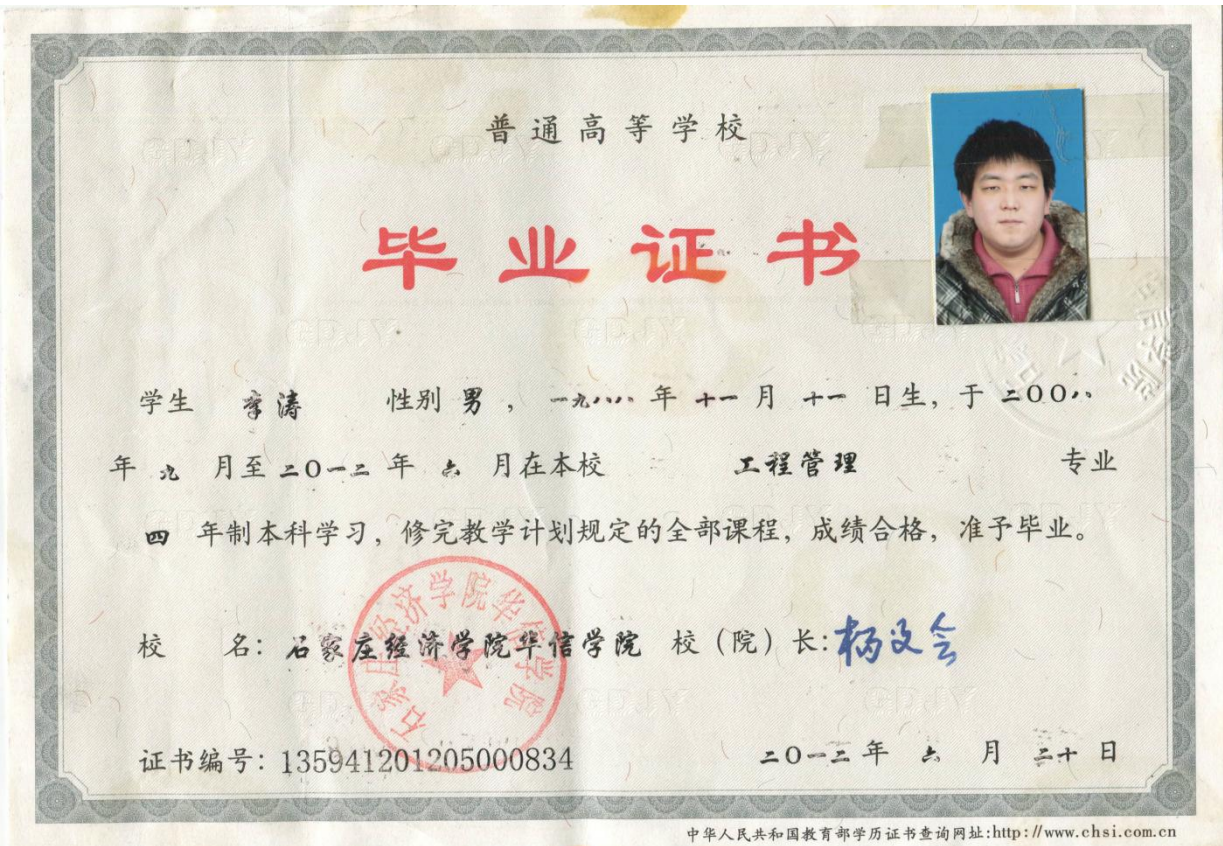 普通高等学校
毕业证书
学生 李涛 性别 男 ，一九八八 年 十一 月 十一 日生，于 二〇〇八
年 九 月至 二〇一二 年 六 月在本校 工程管理 专业
四 年制本科学习，修完教学计划规定的全部课程，成绩合格，准予毕业。
石家庄经济学院华信学院
校 名：石家庄经济学院华信学院 校（院）长：杨文会
证书编号：135941201205000834 二〇一二年 六 月 二十 日
中华人民共和国教育部学历证书查询网址:http://www.chsi.com.cn